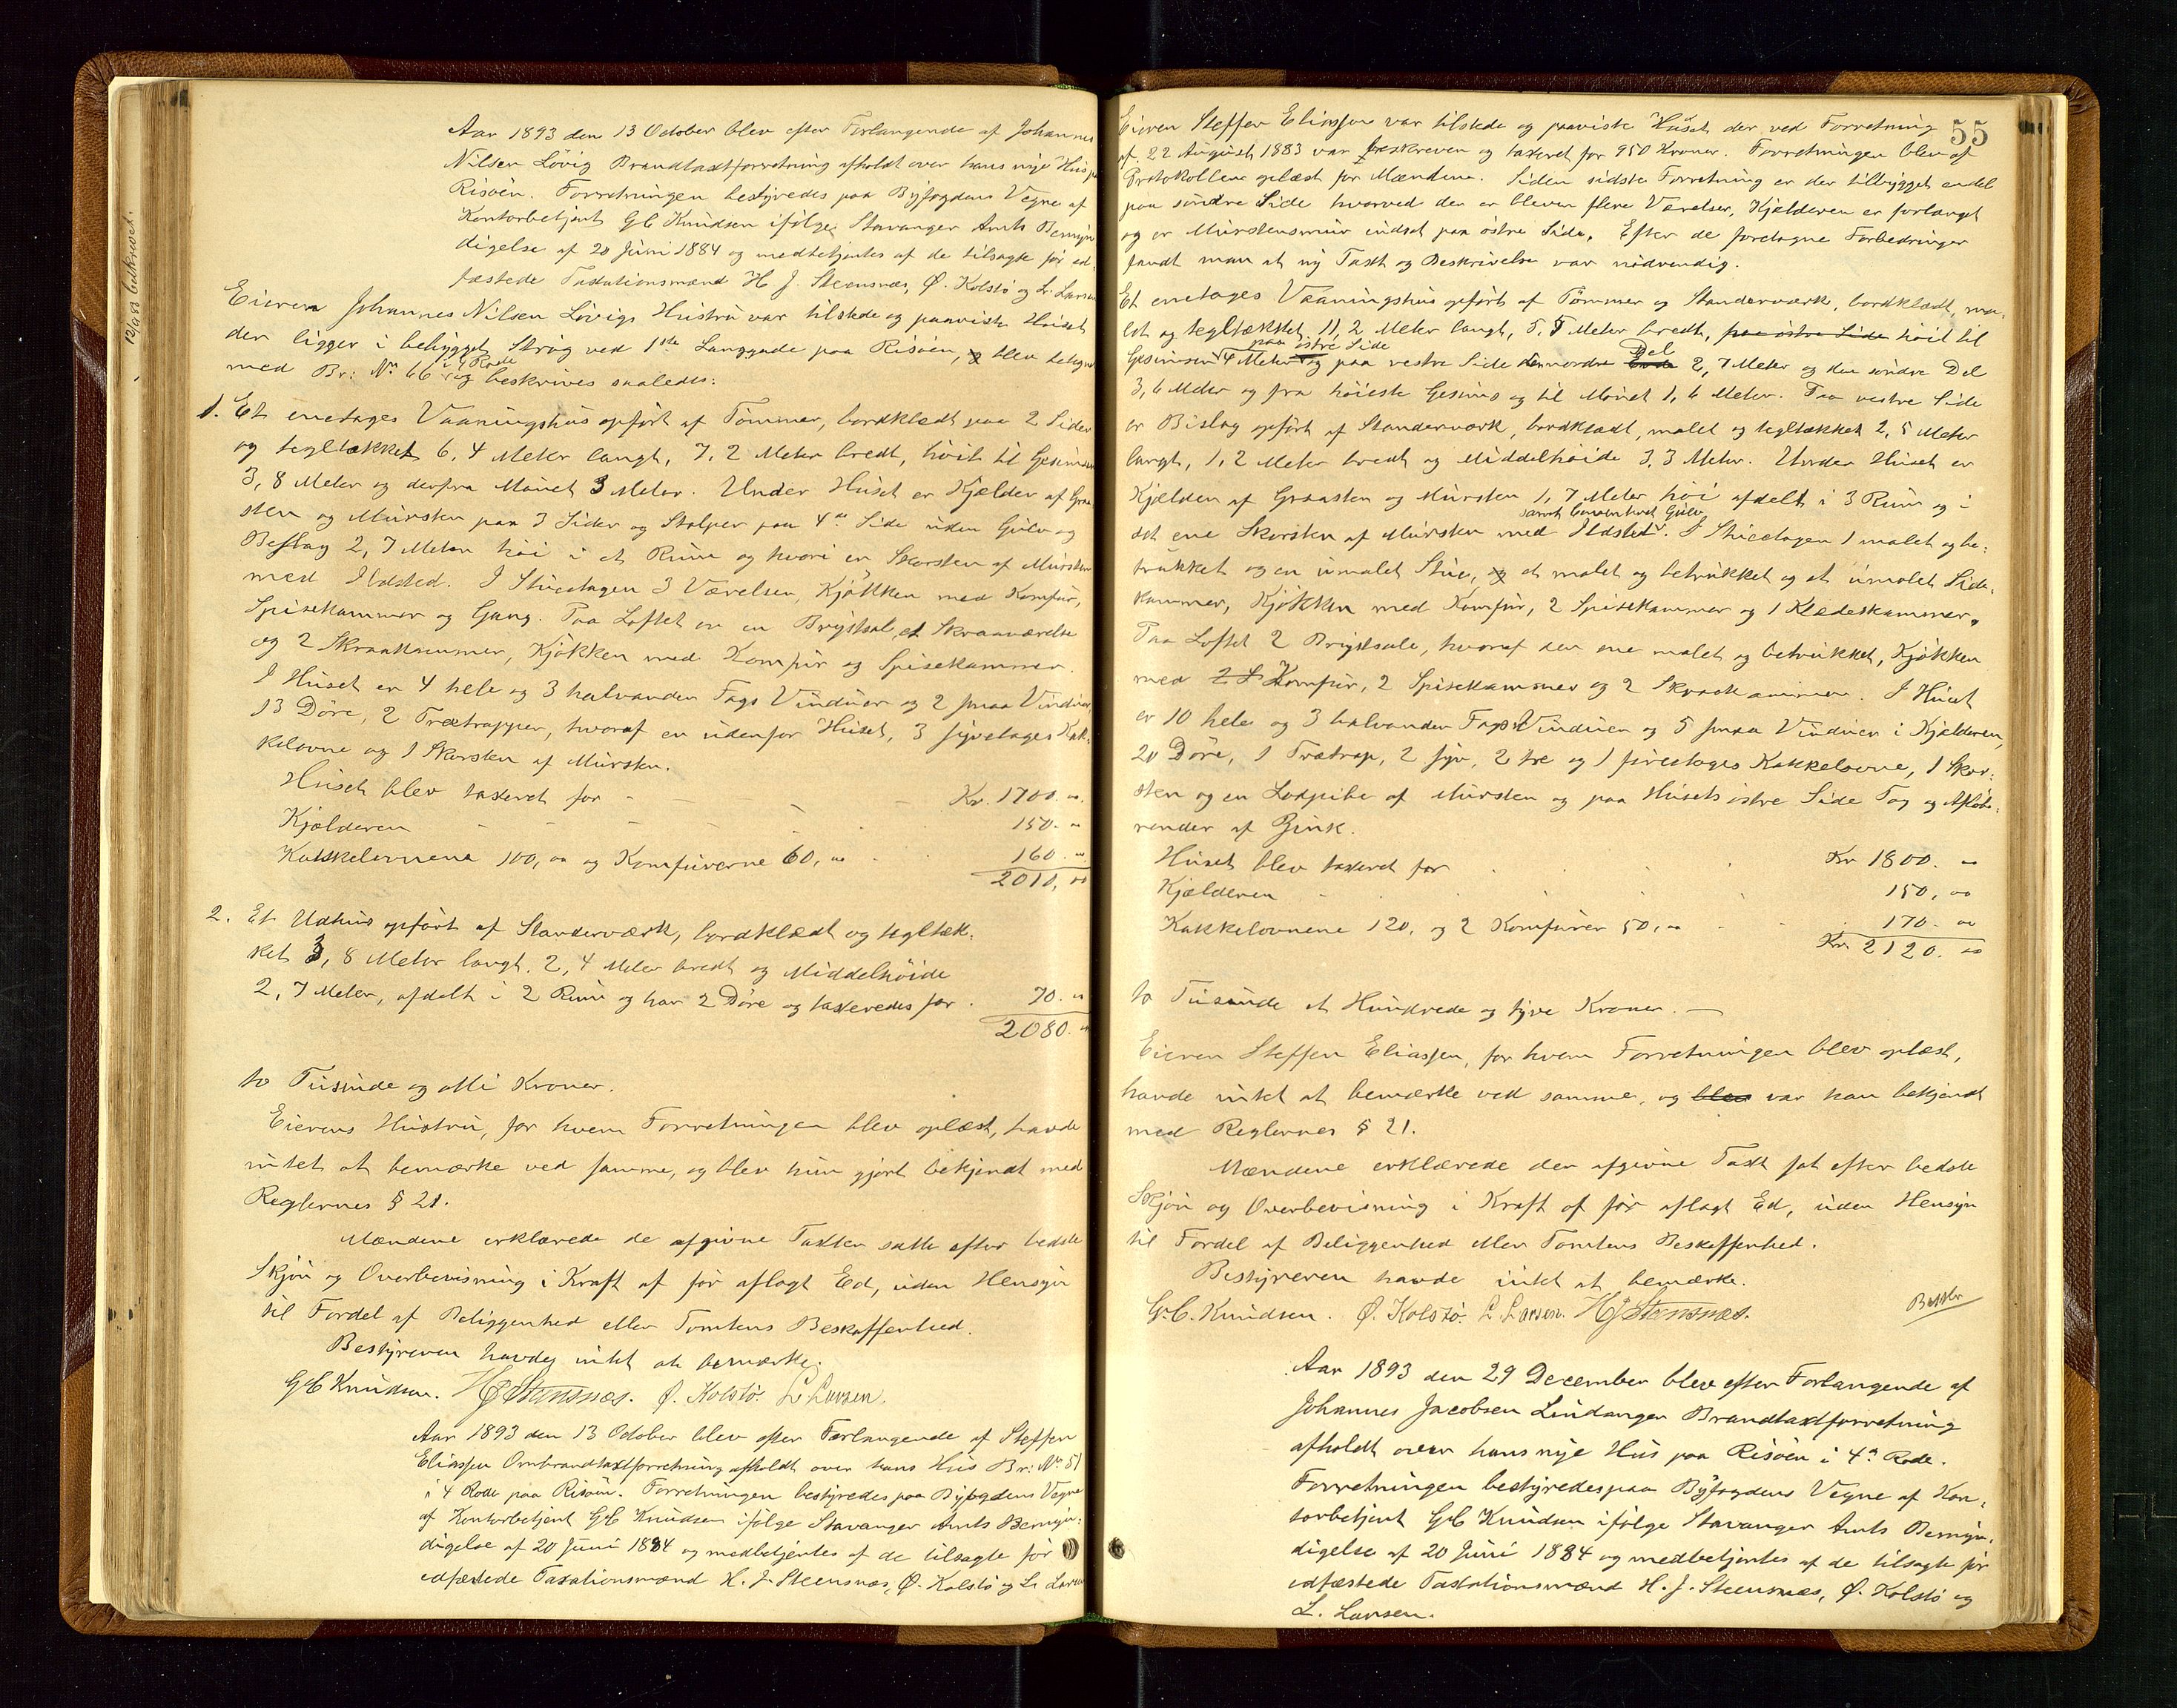 12/9 83 beskrevet.
Aar 1893 den 13 October blev efter Forlangende af Johannes
Nilsen Lövig Brandtaxtforretning afholdt over hans nye Hus
Risöen. Forretningen bestyredes paa Byfogdens Vegne af
Kontorbetjent G C Knudsen ifölge Stavanger Amts Bemyn
digelse af 20 Juni 1884 og medbetjentes af de tilsagte för ed
fæstede Taxtationsmænd H J Steensnæs, Ø. Kolstö og L. Larsen
Eieren Johannes Nilsen Lövigs Hustru var tilstede og paaviste Huset
der ligger i bebygget Strög ved 1ste Langgade paa Risöen, blev betegnet
i 4 Rode
med Br: No 66 og beskrives saaledes:
1. Et enetages Vaaningshus opfört af Tömmer, bordklædt paa 2 Sider
og tegltækket 6,4 Meter langt, 7,2 Meter bredt, höit til Gesimsen
3,8 Meter og derfra Mönet 3 Meter. Under Huset er Kjælder af Graa
sten og Mursten paa 3 Sider og Stolper paa 4de Side uden Gulv og
Beslag 2,7 Meter höi i et Rum og hvori er Skorsten af Mursten
med Ildsted. I Stuetagen 3 Værelser, Kjökken med Komfur,
Spisekammer og Gang. Paa Loftet er en Brystsal, et Skraaværelse
og 2 Skraakammer, Kjökken med Komfur og Spisekammer.
I Huset er 4 hele og 3 halvanden Fags Vinduer og 2 smaa Vinduer
13 Döre, 2 Trætrapper, hvoraf en udenfor Huset, 3 syvetages Kak-
kelovne og 1 Skorsten af Mursten.
Huset blev taxeret for Kr. 1700. "
Kjælderen 150. "
Kakkelovnene 100,00 og Komfurerne 60,00 160. "
2010,00
2. Et Udhus opfört af Standerværk, bordklædt og tegltæk-
ket 3,8 Meter langt. 2,4 Meter bredt og Middelhöide
2,7 Meter, afdelt i 2 Rum og har 2 Döre og taxeredes for 70. "
2080. "
to Tusinde og otti Kroner.
Eierens Hustru, for hvem Forretningen blev oplæst, havde
intet at bemærke ved samme, og blev hun gjort bekjendt med
Reglernes § 21.
Mændene erklærede de afgivne Taxter satte efter bedste
Skjön og Overbevisning i Kraft af för aflagt Ed, uden Hensyn
til Fordel af Beliggenhed eller Tomtens Beskaffenhed.
Bestyreren havde intet at bemærke.
G C Knudsen. H J Steensnæs. Ø. Kolstö. L Larsen.
Aar 1893 den 13 October blev efter Forlangende af Steffen
Eliassen Ombrandtaxtforretning afholdt over hans Hus Br: No 51
i 4 Rode paa Risöen. Forretningen bestyredes paa Byfogdens Vegne
af Kontorbetjent G C Knudsen ifölge Stavanger Amts Bemyn-
digelse af 20 Juni 1884 og medbetjentes af de tilsagte för
edfæstede Taxationsmænd H. J. Steensnæs, Ø. Kolstö og L. Larsen
55
Eieren Steffen Eliassen var tilstede og paaviste Huset der ved Forretning
af 22 August 1883 var beskreven og taxeret for 950 Kroner. Forretningen blev af
Protokollene oplæst for Mændene. Siden sidste Forretning er der tilbygget endel
paa söndre Side hvorved der er bleven flere Værelser, Kjælderen er forlængt
og er Murstensmur indsat paa östre Side. Efter de foretagne Forbedringer
fandt man at ny Taxt og Beskrivelse var nödvendig.
Et enetages Vaaningshus opfört af Tömmer og Standerværk, bordklædt, ma-
let og tegltækket, 11,2 Meter langt, 5,5 Meter bredt, paa östre Side höit til
paa östre Side Del
Gesimsen 4 Meter og paa vestre Side den nordre Ende 2,7 Meter og den söndre Del
3,6 Meter og fra höieste Gesims og til Mönet 1,6 Meter. Paa vestre Side
er Bislag opfört af Standerværk, bordklædt, malet og tegltækket 2,5 Meter
langt, 1,2 Meter bredt og Middelhöide 3,3 Meter. Under Huset er
Kjælder af Graasten og Mursten 1,7 Meter höi afdelt i 3 Rum og i
samt cementeret Gulv
det ene Skorsten af Mursten med Ildsted. I Stuetagen 1 malet og be-
trukket og en umalet Stue, og et malet og betrukket og et umalet Side-
kammer, Kjökken med Komfur, 2 Spisekammer og 1 Klædeskammer.
Paa Loftet 2 Brystsale, hvoraf den ene malet og betrukket, Kjökken
med 2 S Komfur, 2 Spisekammer og 2 Skraakammer. I Huset
er 10 hele og 3 halvanden Fags Vinduer og 5 smaa Vinduer i Kjælderen,
20 Döre, 1 Trætrap, 2 syv, 2 tre og 1 fireetages Kakkelovne, 1 Skor-
sten og en Lodpibe af Mursten og paa Husets östre Side Tag og Aflöbs-
render af Zink.
Huset blev taxeret for Kr 1800. "
Kjælderen 150,00
Kakkelovnene 120, og 2 Komfurer 50,00 170. 00
Kr. 2120. 00
to Tusinde et Hundrede og tyve Kroner.
Eieren Steffen Eliassen, for hvem Forretningen blev oplæst,
havde intet at bemærke ved samme, og blev var han bekjendt
med Reglernes § 21.
Mændene erklærede den afgivne Taxt sat efter bedste
Skjön og Overbevisning i Kraft af för aflagt Ed, uden Hensyn
til Fordel af Beliggenhed eller Tomtens Beskaffenhed.
Bestyreren havde intet at bemærke.
G. C. Knudsen. Ø. Kolstö. L Larsen. H J Steensnæs.
Aar 1893 den 29 December blev efter Forlangende af
Johannes Jacobsen Lindanger Brandtaxtforretning
afholdt over hans nye Hus paa Risöen i 4de Rode.
Forretningen bestyredes paa Byfogdens Vegne af Kon-
torbetjent G C Knudsen ifölge Stavanger Amts Bemyn-
digelse af 20 Juni 1884 og medbetjentes af de tilsagte för
edfæstede Taxtationsmænd H. J. Steensnæs, Ø. Kolstö og
L. Larsen.